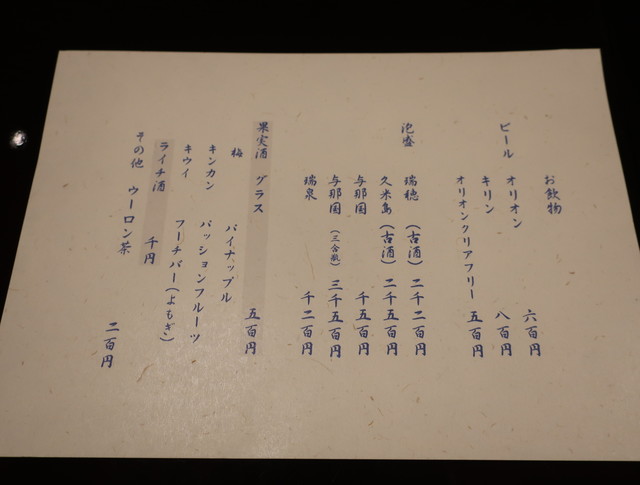 お飲物
ビール オリオン 六百円
キリン 八百円
オリオンクリアフリー 五百円
泡盛 瑞穂 (古酒) 二千二百円
久米島 (古酒) 二千五百円
与那国 千五百円
与那国 (三合瓶) 三千五百円
瑞泉 千二百円
果実酒 グラス 五百円
梅 パイナップル
キンカン パッションフルーツ
キウイ フーチバー(よもぎ)
ライチ酒 千円
その他 ウーロン茶 二百円